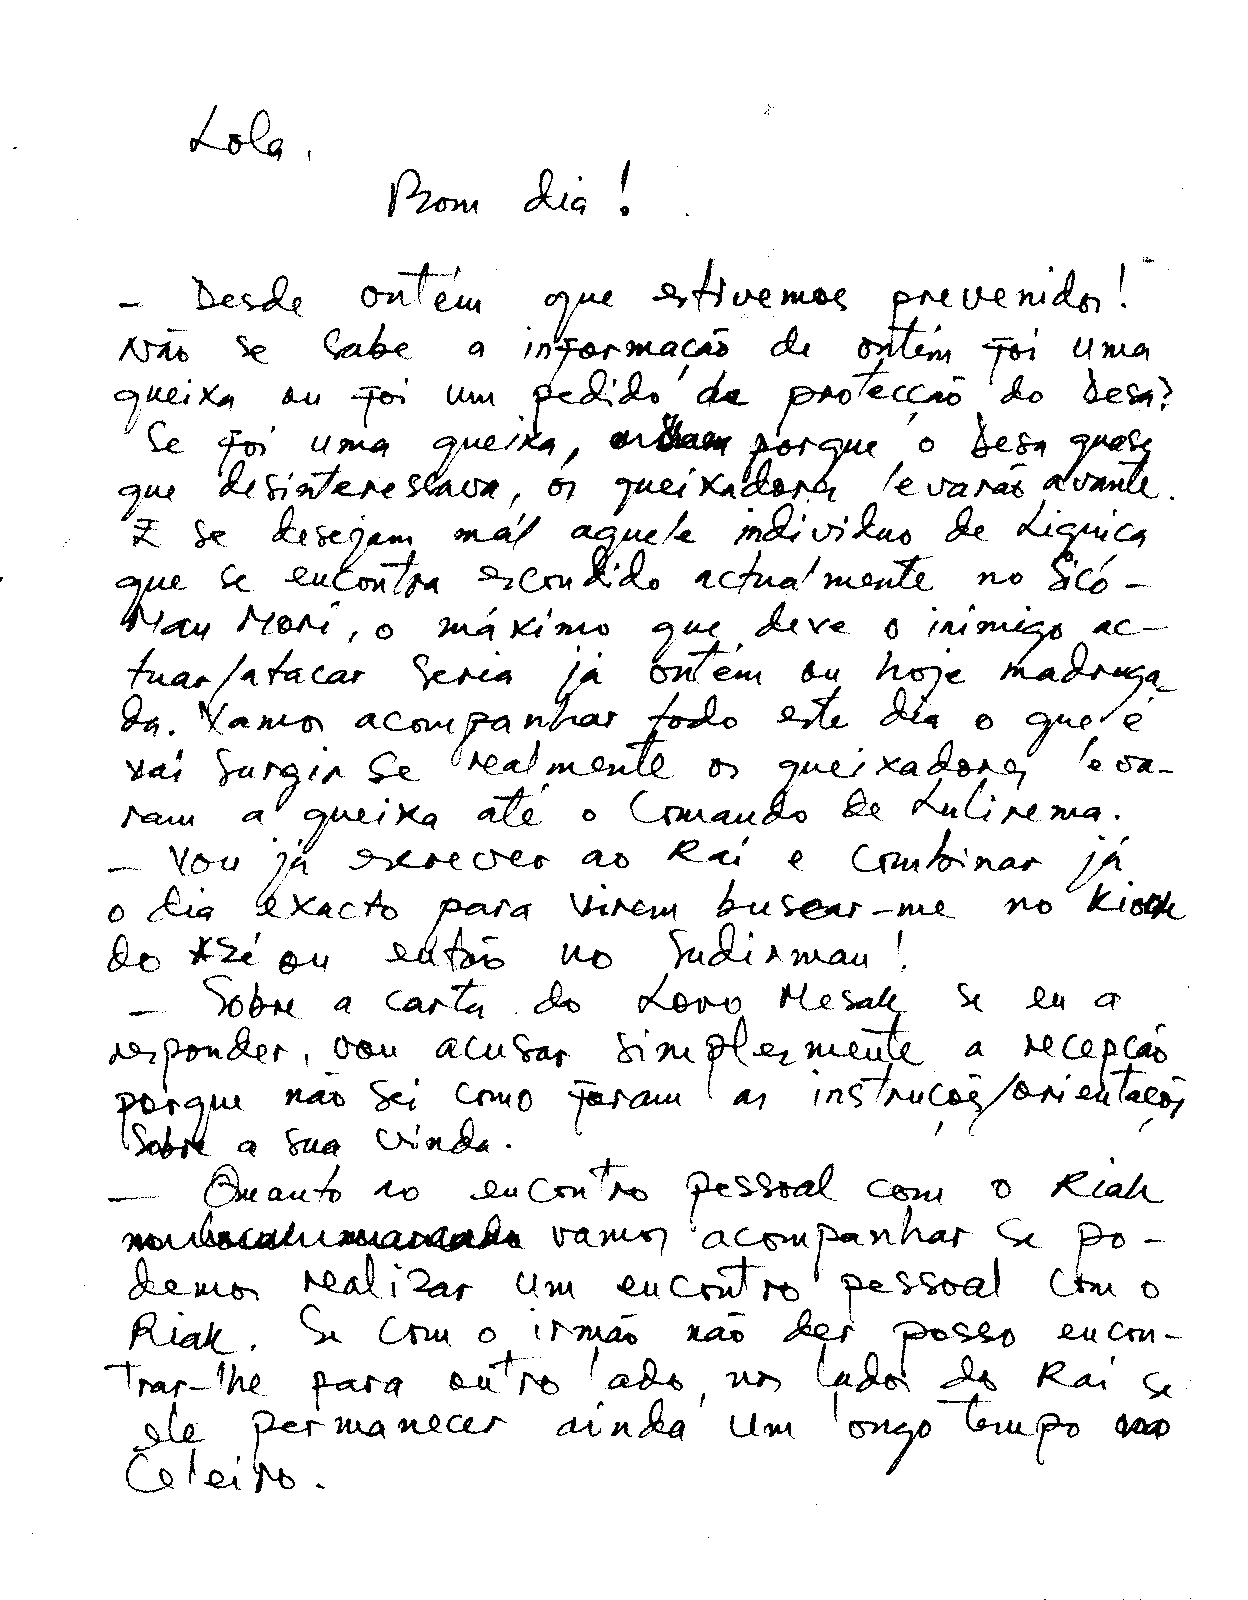 Lola,
Bom dia!
- Desde ontém que estivemos prevenidos!
Não se sabe a informação de ontém foi uma
queixa ou foi um pedido de protecção do Desa?
Se foi uma queixa, porque o Desa quase
que desinteressava, os queixadores levarão avante.
E se desejam mál aquele individuo de Liquiça
que se encontra escondido actualmente no Sicó-
Mau Mori, o máximo que deve o inimigo ac-
tuar/atacar seria já ontém ou hoje madruga-
da. Vamos acompanhar todo este dia o que é
vai surgir se realmente os queixadores leva-
ram a queixa até o Comando de Lulirema.
- Vou já escrever ao Raí e combinar já
o dia exacto para virem buscar-me no Kiosk
do Zé ou então no Sudirman!
- Sobre a carta do Lovo Mesak se eu a
responder, vou acusar simplesmente a recepção
porque não sei como foram as instruções/orientações
sobre a sua vinda.
- Quanto ao encontro pessoal com o Riak
vamos acompanhar se po-
demos realizar um encontro pessoal com o
Riak. Se com o irmão não der posso encon-
trar-lhe para outro lado, nos lados do Raí se
ele permanecer ainda um longo tempo no
Celeiro.